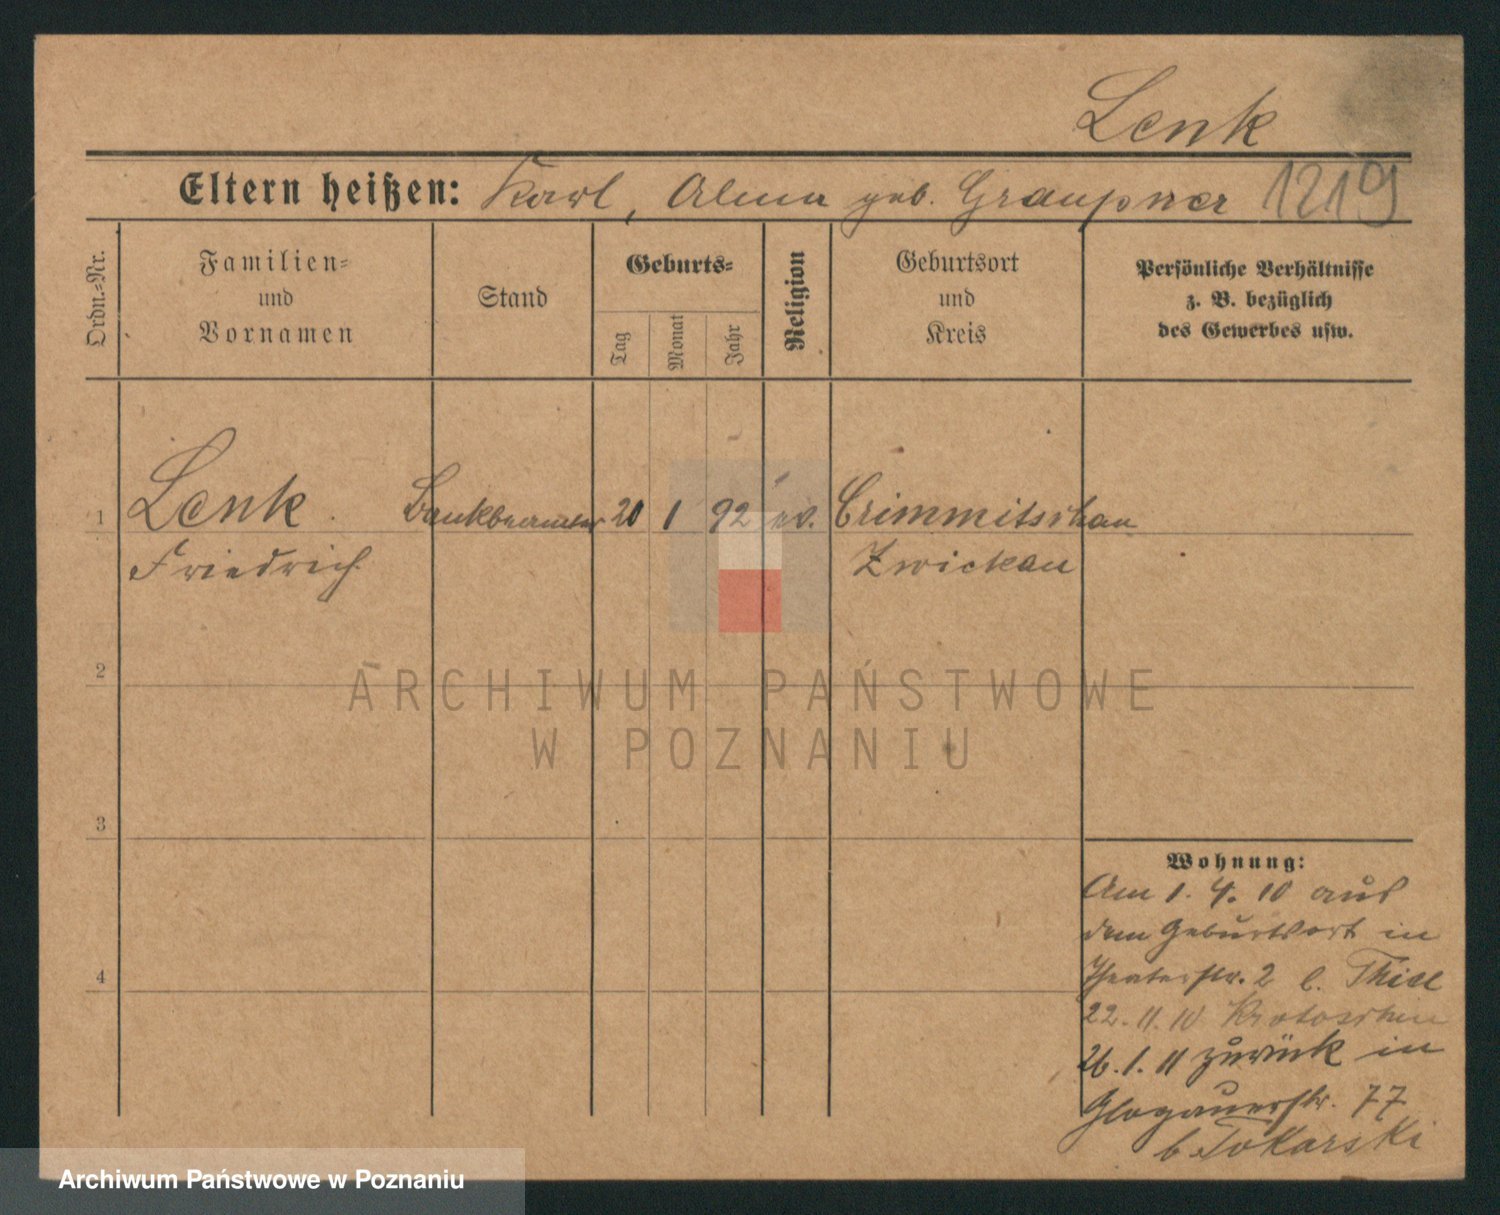 Lenk
Eltern heißen: Karl, Alma geb. Graupner 1219
Ordn.-Nr.
Familien-
und
Vornamen
Stand
Geburts-
Tag
Monat
Jahr
Religion
Geburtsort
und
Kreis
Persönliche Verhältnisse
z. B. bezüglich
des Gewerbes usw.
1 Lenk Bankbeamter 20 1 92 ev. Crimmitschau
Friedrich Zwickau
2
ARCHIWUM PAŃSTWOWE
W POZNANIU
3
Wohnung:
Am 1. 4. 10 aus
dem Geburtsort in
4
Theaterstr. 2 b. Thiel
22. 11. 10 Krotoschin
26. 1. 11 zurück in
Glogauerstr. 77
b. Tokarski
Archiwum Państwowe w Poznaniu